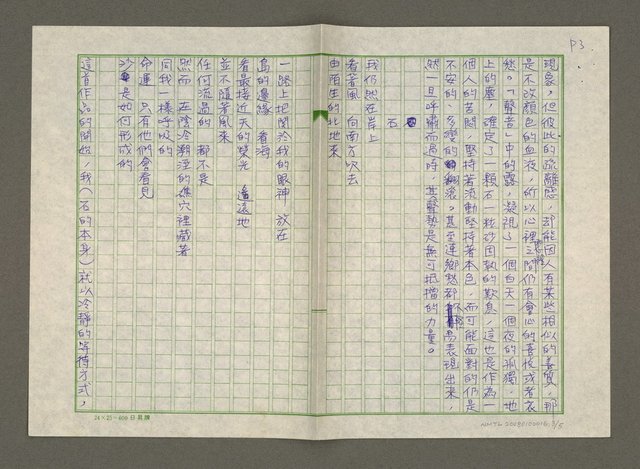 P3.
現象。但彼此的疏離感，却能因人有某些相似的養質，那
是不改顏色的血液，所以心裡之間仍有會心的喜悅或者哀
愁。「聲音」中的露，凝視了一個白天一個夜的孤獨，地
上的塵，確定了一顆石一粒砂固執的歎息，這也是作為一
個人的苦悶，堅持著流動堅持著本色，而可能面對的仍是
不安的、多變的翻滾。甚至連鄉愁都不易表現出來，
然一旦呼嘯而過時，其聲勢是無可抵擋的力量。
石
我仍然在岸上
看著風 向南方吹去
由陌生的北地來
一路上把関於我的眼神 放在
島的邊緣 看海
看最接近天的榮光 遙遠地
並不隨著風來
任何流過的 都不是
同我一樣呼吸的
然而 在陰冷潮溼的巢穴裡藏著
命運 只有他們會看見
沙是如何形成的
這首作品的開始，我（石的本身）就以冷靜的等待方式，
24×25=600日昇牌
NMTL20080100016 3/5